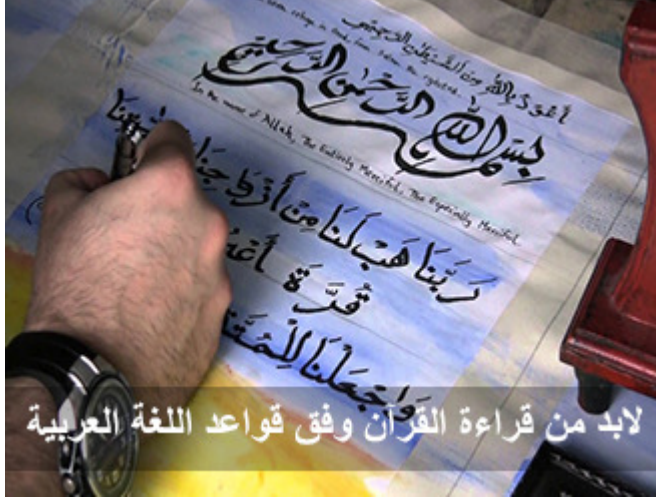 أعوذ بالله من الشيطان الرجيم
بسم الله الرحمن الرحيم
In the name of Allah, The Entirely Merciful, The Especially Merciful.
ربنا هب لنا من أزواجنا
قرة
واجعلنا للمتق
لابد من قراءة القرآن وفق قواعد اللغة العربية